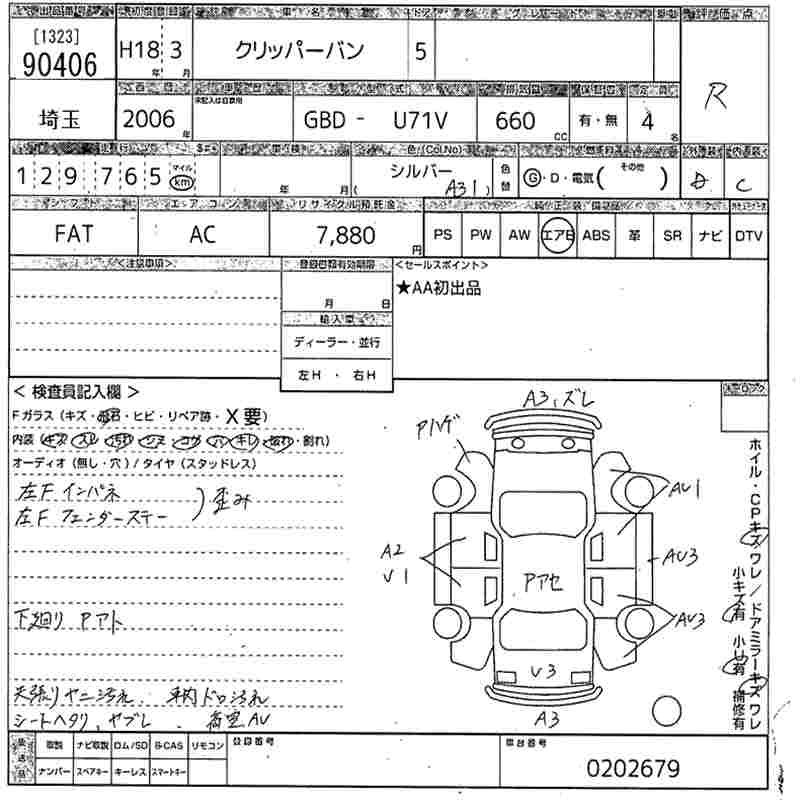 出品番号 初度登録 車名 ドア グレード 評価点
[1323]
90406
H18年 3月 クリッパーバン 5 R
埼玉
西暦 車歴 型式 排気量 保証書 定員
2006年 記入は自家用 GBD - U71V 660cc 有・無 4名
走行 車検 色(Col.No) 燃料 外装 内装
129,765 マイル km 年 月 シルバー (A31) 色替 G・D・電気( その他 ) D C
シフト エアコン リサイクル預託金 純正装備品
FAT AC 7,880円 PS PW AW エアB ABS 革 SR ナビ DTV
<注意事項> 登録書類有効期限 <セールスポイント>
月 日 ★AA初出品
輸入車
ディーラー・並行
左H ・ 右H
< 検査員記入欄 >
Fガラス (キズ・飛石・ヒビ・リペア跡・X要)
内装 (キズ ズレ 汚れ シミ コゲ 穴 キレ 割れ)
オーディオ (無し・穴) / タイヤ (スタッドレス)
左F インパネ
左F フェンダーステー
) 歪み
下廻り Pアト
天張りヤニ汚れ、車内ドロ汚れ
シートヘタリ、ヤブレ、荷室AU
A3、ズレ
Aハゲ
AU1
A2
U1
AU3
Pアセ
AU3
U3
A3
ホイル・CPキズワレ/ドアミラーキズワレ
小キズ有 小U有 補修有
後送品 取説 ナビ取説 ロム/SD B-CAS リモコン 登録番号 車台番号
ナンバー スペアキー キーレス スマートキー
0202679